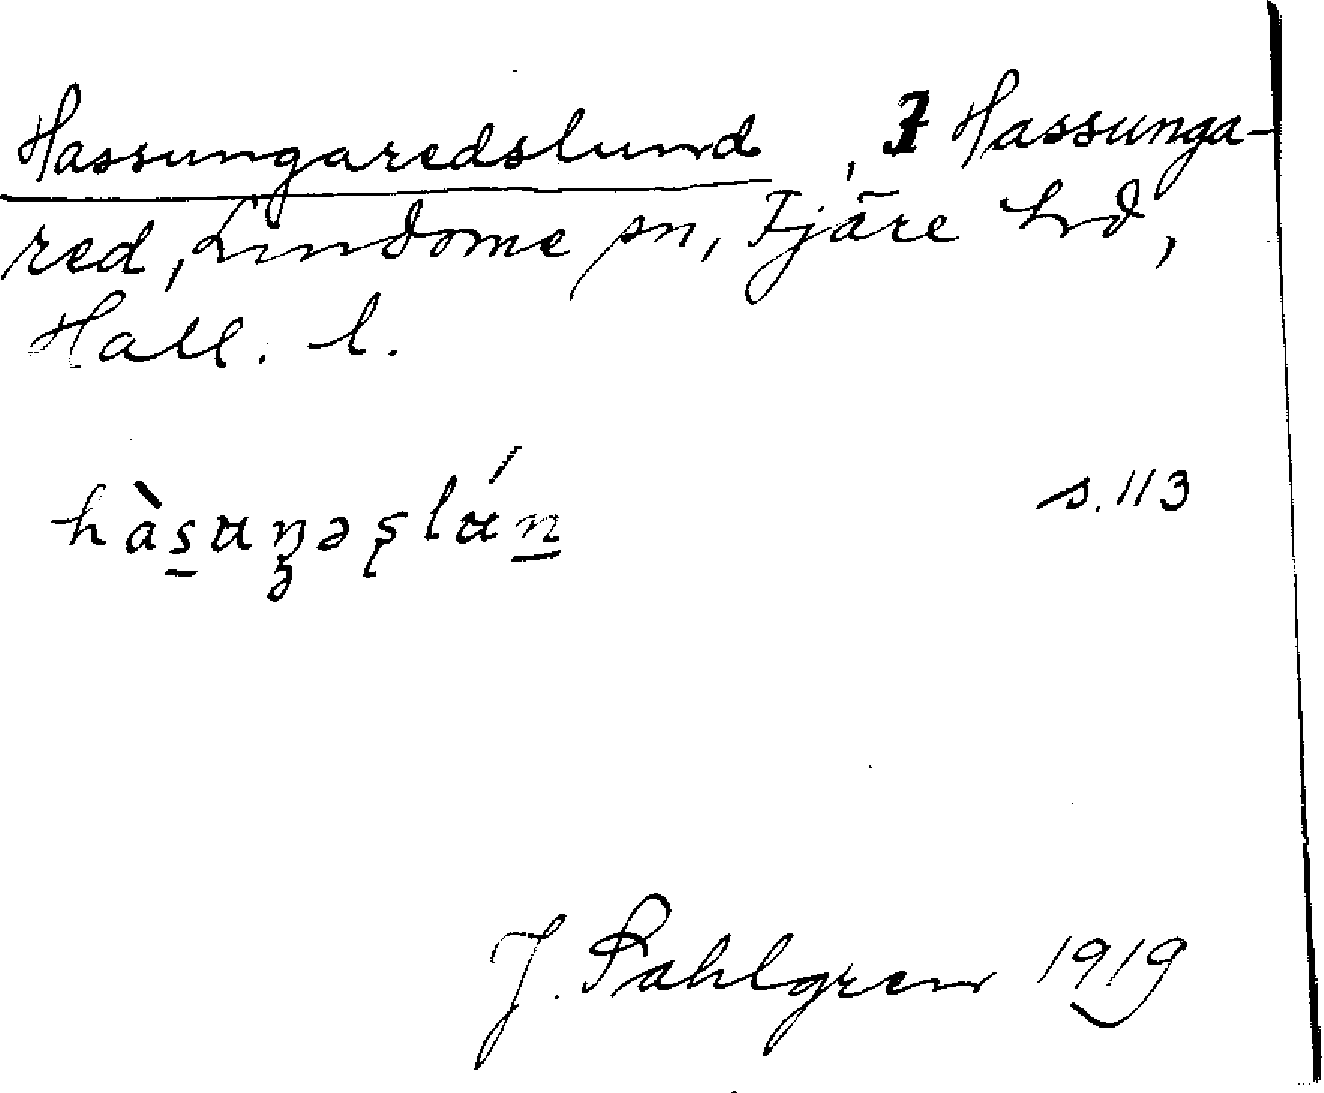 Hassungaredslund, 1 Hassunga-
red, Lindome sn, Fjäre hd,
Hall. l.
hàs̲ɑŋəşlɑ́n̲ s. 113
J. Sahlgren 1919